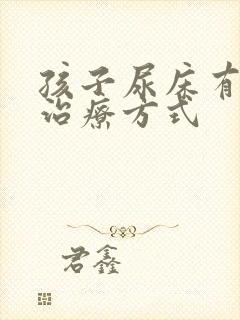 孩子尿床有
治疗方式
君鑫